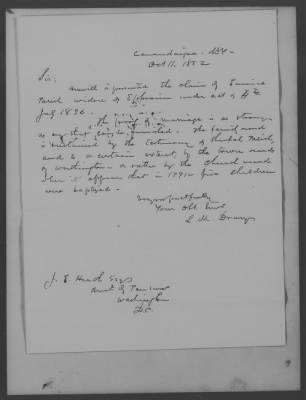 Canandaigua. N.Y.
Oct 11. 1852
Sir:
Herewith is presented the claim of
widow of Ephraim under act of 4th
July 1836.
The proof of marriage is as strong
as any that can be The family record
is sustained by the testimony of
and to a certain extent, by the town records
of Worthington - or rather by the church records
where it appears that in 1791 - five children
were baptized.
Very respectfully
Your Obt Servt
L. M.
J. E. Heath Esqr
of Pensions
Washington
D.C.